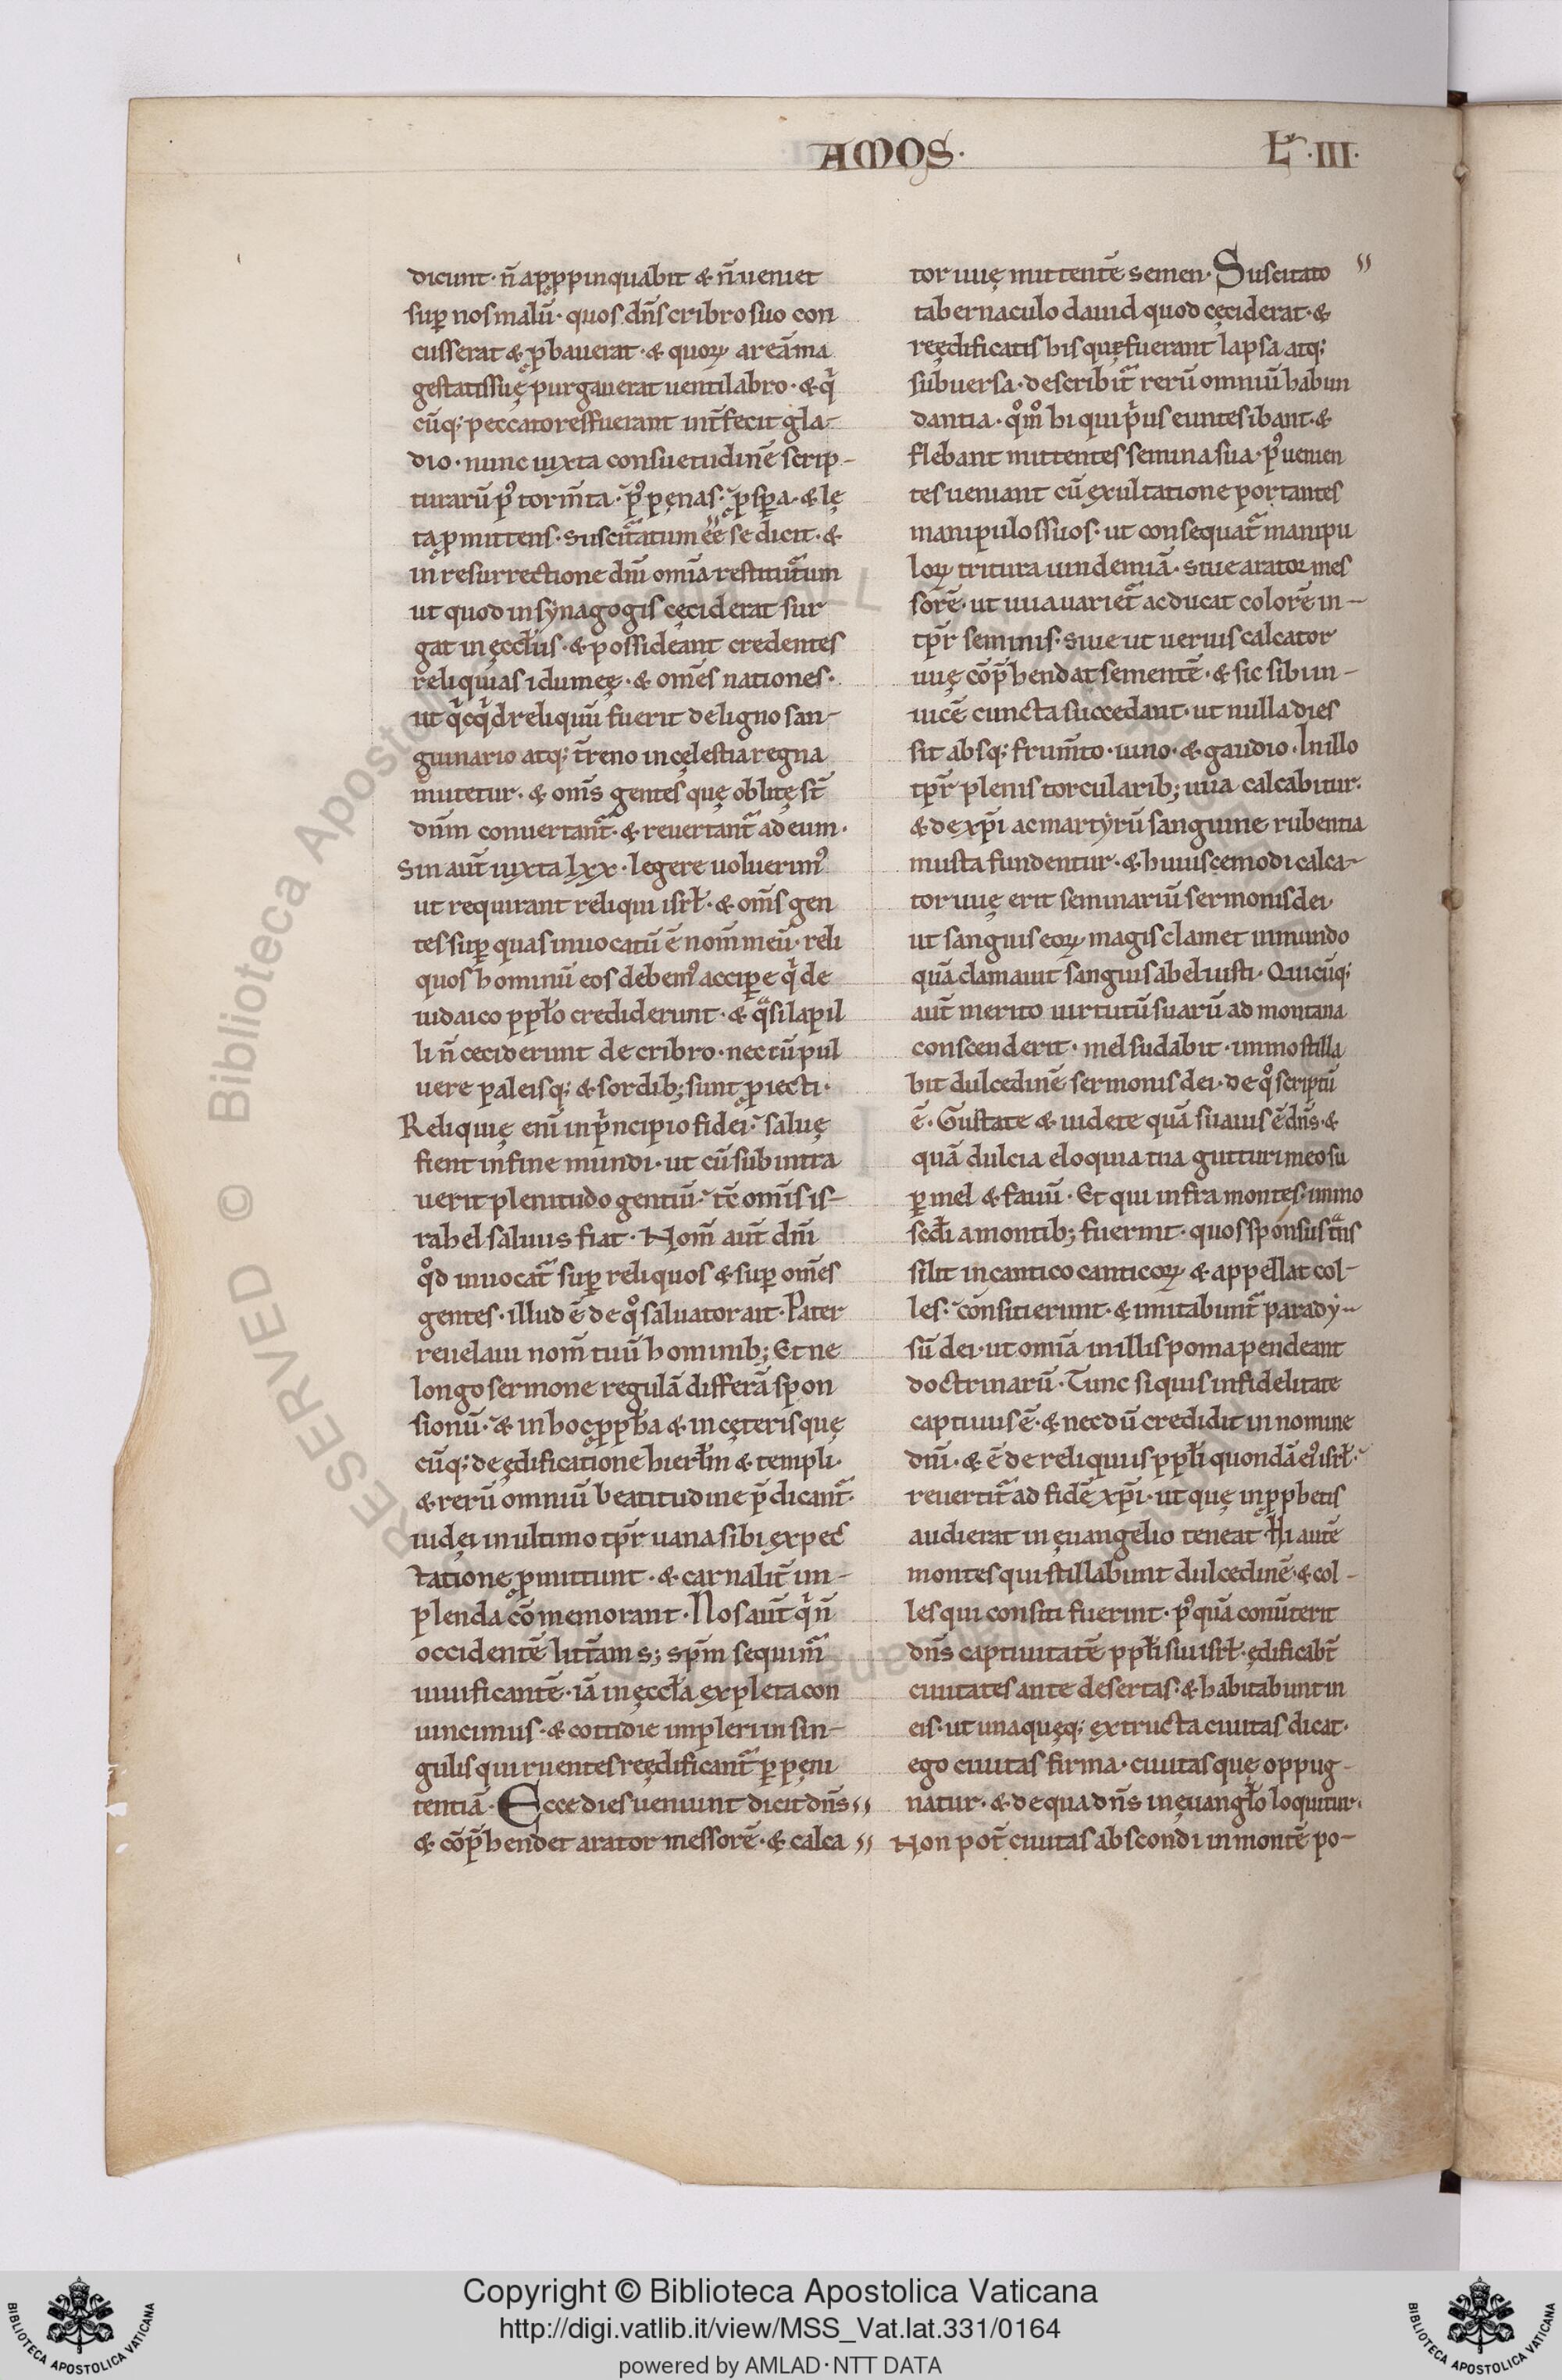 AMOS·
L̄·III·
dicunt· n̄ apꝓpinquabit & n̄ ueniet
suꝑ nos malū· quos dn̄s cribro suo con
cusserat & ꝓbauerat· & quoꝝ areā ma
gestatis suę purgauerat uentilabro· & q̇
cūq; peccatores fuerant int̄fecit gla-
dio· nunc iuxta consuetudinē scrip-
turarū pꝰ torm̄ta· pꝰ pęnas· ꝓspera· & lę
ta ꝓmittens· suscitatum ēe se dicit· &
in resurrectione dn̄i om̄ia restitutum
ut quod in synagogis ceciderat sur
gat in ęccłiis· & possideant credentes
reliquias idumeę· & om̄es nationes·
ut q̇cq̇d reliquū fuerit de ligno san-
guinario atq; t̄reno in cęlestia regna
mutetur· & om̄s gentes quę oblitę st̄
dn̄m conuertant᷑· & reuertant᷑ ad eum·
Sin aut̄ iuxta lxx· legere uoluerimꝰ
ut requirant reliqui isrł· & om̄s gen
tes suꝑ quas inuocatū ē nom̄ meū· reli
quos hominū eos debemꝰ acciꝑe q̇ de
iudaico ppło crediderunt· & q̈si lapil
li n̄ ceciderunt de cribro· nec cū pul
uere paleisq; & sordib; sunt ꝓiecti·
Reliquię eni in ṗncipio fidei· saluę
fient in fine mundi· ut cū subintra
uerit plenitudo gentiū· tc̄ om̄is is-
rahel saluus fiat· Nom̄ aut̄ dn̄i
qd̊ inuocat᷑ suꝑ reliquos & suꝑ om̄es
gentes· illud ē de qͦ saluator ait· Pater
reuelaui nom̄ tuū hominib; Et ne
longo sermone regulā differā spon
sionū· & in hoc ꝓpħa & in cęteris quę
cūq; de ędificatione hierłm & templi·
& rerū omniū beatitudine p̄dicant᷑·
iudęi in ultimo tp̄r uana sibi expec
tatione ꝓmittunt· & carnalit̄ im-
plenda cōmemorant· Nos aut̄ q̇ n̄
occidentē litt̄am s; sp̄m sequim᷑
uiuificantē· iā in ęccła expleta con
uincimus· & cottidie impleri in sin-
gulis qui ruentes reędificant᷑ ꝑ pęni
tentiā· Ecce dies ueniunt dicit dn̄s
& cōp̄hendet arator messorē· & calca
tor uuę mittentē semen· Suscitato
tabernaculo dauid quod ceciderat· &
reędificatis his quę fuerant lapsa atq;
subuersa· describit᷑ rerū omniū habun
dantia· qͦm̊ hi qui ṗus euntes ibant· &
flebant mittentes semina sua· pꝰ uenien
tes ueniant cū exultatione portantes
manipulos suos· ut consequat᷑ manipu
loꝝ tritura uindemiā· siue arator mes
sorē· ut uua uariet᷑ ac ducat colorē in-
tp̄r seminis· siue ut uerius calcator
uuę cōp̄hendat sementē· & sic sib in-
uicē cuncta succedant· ut nulla dies
sit absq; frum̄to· uino· & gaudio· In illo
tp̄r plenis torcularib; uua calcabitur·
& de xp̄i ac martyrū sanguine rubentia
musta fundentur· & huiuscemodi calca-
tor uuę erit seminariū sermonis dei·
ut sanguis eoꝝ magis clamet in mundo
quā clamauit sanguis abel iusti· Quicūq;
aut̄ merito uirtutū suarū ad montana
conscenderit· mel sudabit· immo stilla
bit dulcedinē sermonis dei· de qͦ scriptū
ē· Gustate & uidete quā suauis ē dn̄s· &
quā dulcia eloquia tua gutturi meo su
ꝑ mel & fauū· Et qui infra montes· immo
scd̄i a montib; fuerint· quos sponsus t̄ns
silit in cantico canticoꝝ & appellat col-
les· consitierunt· & imitabunt᷑ parady-
sū dei· ut omia in illis poma pendeant
doctrinarū· Tunc si quis infidelitate
captiuus ē· & necdū credidit in nomine
dn̄i· & ē de reliquiis ppłi quondā eiꝰ isrł·
reuertit᷑ ad fidē xp̄i· ut quę in ꝓphetis
audierat in euangelio teneat· Hi autē
montes qui stillabunt dulcedinē· & col-
les qui consiti fuerint· pꝰquā conūterit
dn̄s captiuitatē ppłi sui isrł· ędificabt̄
ciuitates ante desertas· & habitabunt in
eis· ut unaquęq; extructa ciuitas dicat·
ego ciuitas firma· ciuitas quę oppug-
natur· & de qua dn̄s in euangło loquitur·
Non pot̄ ciuitas abscondi in montē po-
© Biblioteca Apostolica Vaticana
RESERVED
Copyright © Biblioteca Apostolica Vaticana
http://digi.vatlib.it/view/MSS_Vat.lat.331/0164
powered by AMLAD·NTT DATA
BIBLIOTECA APOSTOLICA VATICANA
BIBLIOTECA APOSTOLICA VATICANA